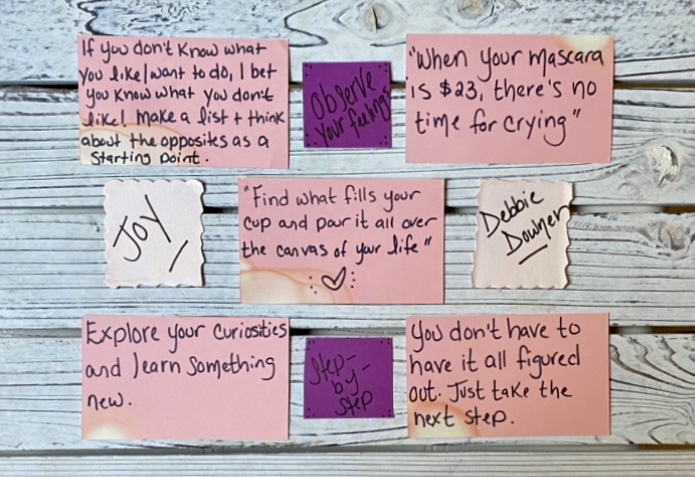 If you don't know what
you like/want to do, I bet
you know what you don't
like! Make a list + think
about the opposites as a
starting point.
Observe
your feelings
"When your mascara
is $23, there's no
time for crying"
Joy
"Find what fills your
cup and pour it all over
the canvas of your life"
Debbie
Downer
Explore your curiosities
and learn something
new.
Step-
by-
Step
You don't have to
have it all figured
out. Just take the
next step.